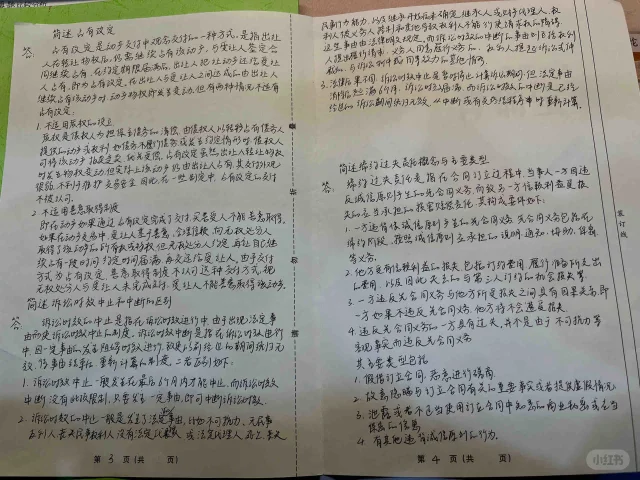 简述占有改定
答:
占有改定是动产交付中观念交付的一种方式,是指出让
人在转让物权后,仍需继续占有该动产,与受让人签定合
同继续占有,在约定期限届满后,出让人把让动产还给受让
人占有,即为占有改定,在出让人与受让人之间达成由出让人
继续占有该动产时,动产物权即发生变动,但有两种情况不适用
占有改定:
1. 不适用质权的设立
质权是债权人为担保主债务的清偿,由债权人以转移占有债务人
提供的动产或权利,如债务不履行债务或发生约定情形时债权人
可将该动产拍卖变卖优先受偿,占有改定虽然出让人转让物权
时发生物权变动,但实际上该动产仍由出让人占有,其交付状况
很弱,不利于维护交易安全,因此,在一些制定中,占有改定的交付
不被认可。
2. 不适用善意取得制度
即在动产如果通过占有改定完成了交付,买受受人不能善意取得,
如果在动产交易中,受让人基于善意,合理价格,向无处分人
取得了该动产的所有权或物权,但无权处分人约定,再让自己继
续占有一段时间,约定时间届满,再交还给受让人,由于交付
方式为占有改定,善意取得制度不认可这种交付方式,视
无权处分人与受让人未完成交付,受让人不能善意取得该动产。
简述诉讼时效中止和中断的区别
答
诉讼时效的中止是指在诉讼时效进行中由于出现法定事
由而使诉讼时效中止的制度。诉讼时效中断是指在诉讼时效进行
中,因一定事由的发生阻碍时效进行,致使以前经过的期间统归无
效,待事由结束后,重新计算的制度。二者区别如下:
1. 诉讼时效中止一般发生在最后6个月内才能中止,而诉讼时效
中断没有此限制,只要发生一定事由,即可中断诉讼时效。
2. 诉讼时效的中止一般是发生了法定事由,比如不可抗力,无民事
第 3 页(共 页)
民事行为能力,以及继承开始后未确定继承人或
3. 法律后果不同,诉讼时效中止是暂时停止计算诉讼期间,但法定事由
消除后必满6个月,诉讼时效届满,而诉讼时效的中断是已经
经过的诉讼期间统归无效,从中断或有关终结程序时重新计算。
简述缔约过失责任概念与主要类型
答:
缔约过失责任是指在合同订立过程中,当事人一方因违
反诚信原则产生的先合同义务,而致另一方信赖利益受损
失的应当承担的损害赔偿责任,其构成要件如下:
1. 一方违背依诚信原则产生的先合同义务,先合同义务包括在
缔约阶段,按照诚信原则应承担的说明、通知、协助、保密
等义务。
2. 他方是有信赖利益的损失,包括订约费用,履行准备所支出
的费用,以及因此失去的与第三人订约的机会损失等
3. 一方违反先合同义务与他方所受损失之间具有因果关系,即
一方如果不违反先合同义务,他方将不会遭受损失。
4. 违反先合同义务的一方具有过失,并不是由于不可抗力等
客观事实而违反先合同义务
其主要类型包括
1. 假借订立合同,恶意进行磋商
2. 故意隐瞒与订立合同有关的重要事实或者提供虚假情况
3. 泄露或者不正当使用订立合同中知悉的商业秘密或者应当
保密的信息
4. 有其他违背诚信原则的行为。
第 4 页(共 页)
装订线
小红书